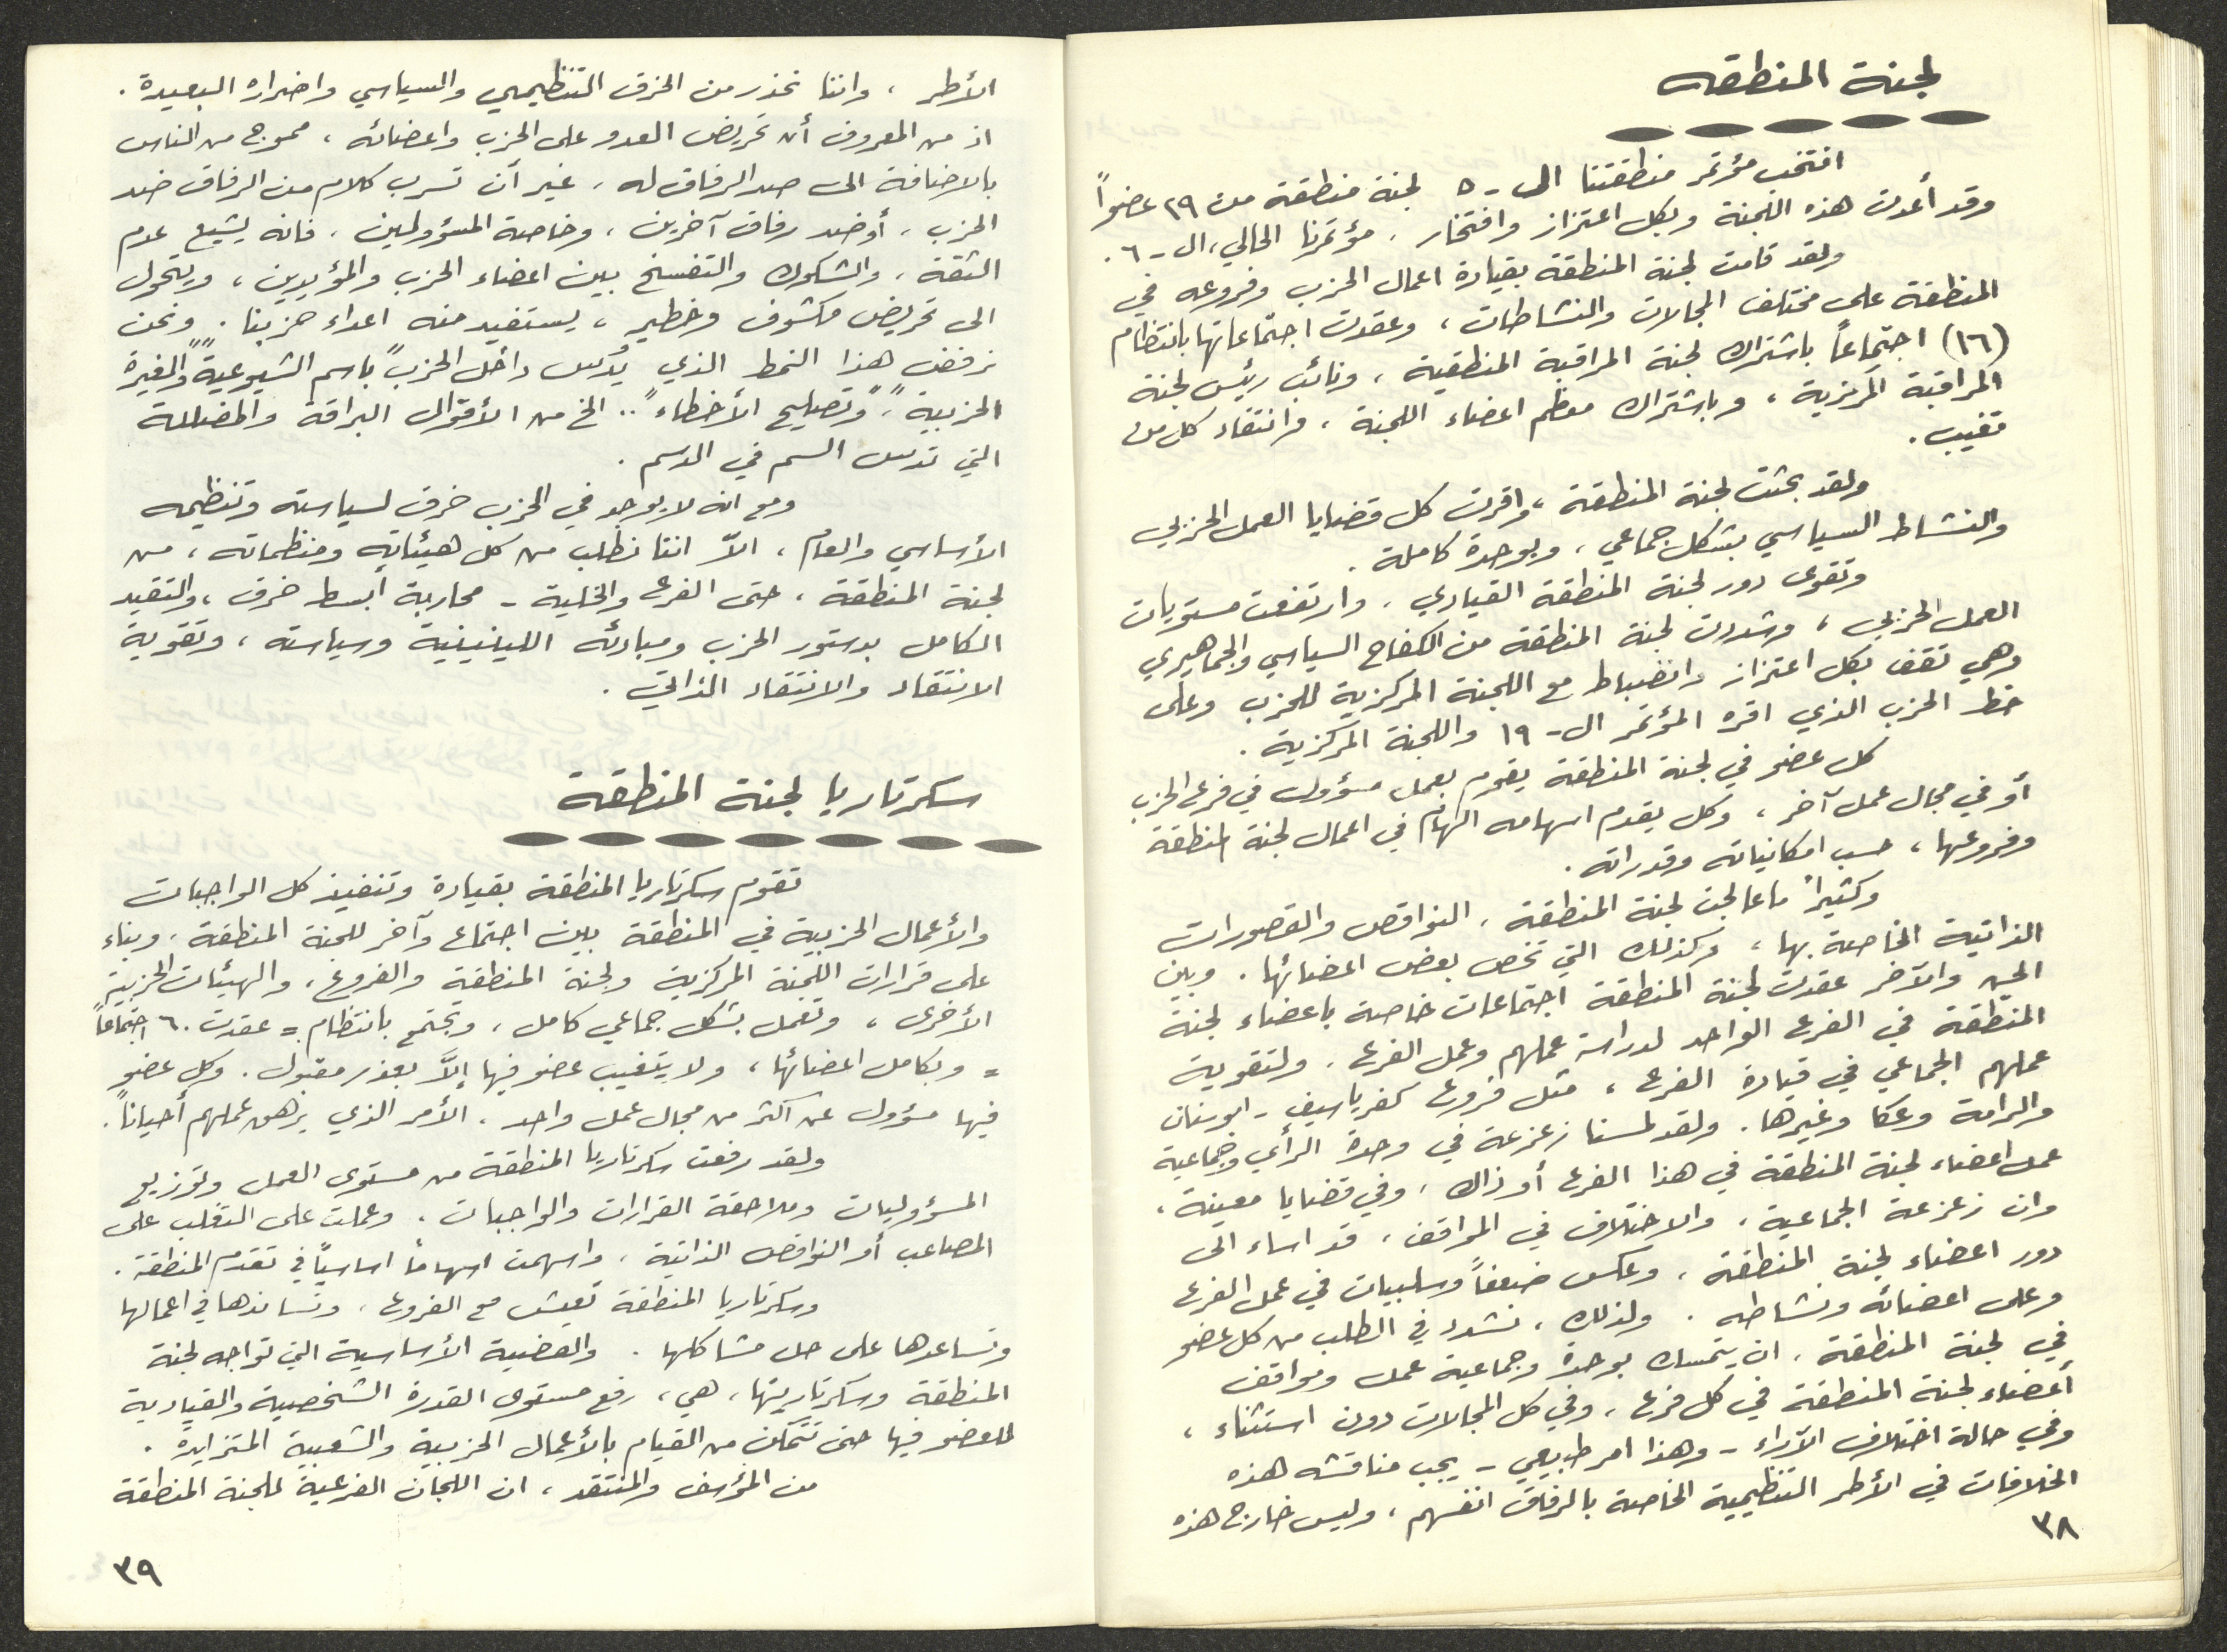 لجنة المنطقه
انتخب مؤتمر منطقتنا الى - ٥ لجنة منطقة من ٢٩ عضواً
وقد أعدت هذه اللجنة وبكل اعتزاز وافتخار ، مؤتمرنا الحالي ، ال - ٦ .
ولقد قامت لجنة المنطقة بقيادة اعمال الحزب وفروعه في
المنطقة على مختلف المجالات والنشاطات ، وعقدت اجتماعاتها بانتظام
(١٦) اجتماعاً باشتراك لجنة المراقبة المنطقية ، ونائب رئيس لجنة
المراقبة المركزية ، وباشتراك معظم اعضاء اللجنة ، وانتقاد كل من
تغيب .
ولقد بحثت لجنة المنطقة ، واقرت كل قضايا العمل الحزبي
والنشاط السياسي بشكل جماعي ، وبوحدة كاملة .
وتقوى دور لجنة المنطقة القيادي ، وارتفعت مستويات
العمل الحزبي ، وشددت لجنة المنطقة من الكفاح السياسي والجماهيري
وهي تقف بكل اعتزاز وانضباط مع اللجنة المركزية للحزب وعلى
خط الحزب الذي اقره المؤتمر ال - ١٩ واللجنة المركزية .
كل عضو في لجنة المنطقة يقوم بعمل مسؤول في فرع الحزب
أو في مجال عمل آخر ، وكل يقدم اسهامه الهام في اعمال لجنة المنطقة
وفروعها ، حسب امكانياته وقدراته .
وكثيراً ما عالجت لجنة المنطقة ، النواقص والقصورات
الذاتية الخاصة بها ، وكذلك التي تخص بعض اعضائها . وبين
الحين والآخر عقدت لجنة المنطقة اجتماعات خاصة باعضاء لجنة
المنطقة في الفرع الواحد لدراسة عملهم وعمل الفرع ، ولتقوية
عملهم الجماعي في قيادة الفرع ، مثل فروع كفرياسيف - ابوسنان
والرامة وعكا وغيرها . ولقد لمسنا زعزعة في وحدة الرأي وجماعية
عمل اعضاء لجنة المنطقة في هذا الفرع أو ذاك ، وفي قضايا معينة ،
وان زعزعة الجماعية ، والاختلاف في المواقف ، قد اساء الى
دور اعضاء لجنة المنطقة ، وعكس ضعفاً وسلبيات في عمل الفرع
وعلى اعضائه ونشاطه . ولذلك ، نشدد في الطلب من كل عضو
في لجنة المنطقة ، ان يتمسك بوحدة وجماعية عمل ومواقف
أعضاء لجنة المنطقة في كل فرع ، وفي كل المجالات دون استثناء ،
وفي حالة اختلاف الآراء - وهذا امر طبيعي - يجب مناقشه هذه
الخلافات في الأطر التنظيمية الخاصة بالرفاق انفسهم ، وليس خارج هذه
٣٨
الأطر ، واننا نحذر من الخرق التنظيمي والسياسي واضراره البعيدة .
اذ من المعروف أن تحريض العدو على الحزب واعضائه ، ممجوج من الناس
بالاضافة الى صد الرفاق له ، غير أن تسرب كلام من الرفاق ضد
الحزب ، أو ضد رفاق آخرين ، وخاصة المسؤولين ، فانه يشيع عدم
الثقة ، والشكوك والتفسخ بين اعضاء الحزب والمؤيدين ، ويتحول
الى تحريض مكشوف وخطير ، يستفيد منه اعداء حزبنا . ونحن
نرفض هذا النمط الذي يُدَس داخل الحزب "باسم الشيوعية" "والغيرة
الحزبية" ، "وتصليح الأخطاء" .. الخ من الأقوال البراقة والمضللة
التي تدس السم في الدسم .
ومع انه لا يوجد في الحزب خرق لسياسته وتنظيمه
الأساسي والعام ، الاّ اننا نطلب من كل هيئاته ومنظماته ، من
لجنة المنطقة ، حتى الفرع والخلية - محاربة أبسط خرق ، والتقيد
الكامل بدستور الحزب ومبادئه اللينينية وسياسته ، وتقوية
الانتقاد والانتقاد الذاتي .
سكرتاريا لجنة المنطقة
تقوم سكرتاريا المنطقة بقيادة وتنفيذ كل الواجبات
والأعمال الحزبية في المنطقة بين اجتماع وآخر للجنة المنطقة ، وبناء
على قرارات اللجنة المركزية ولجنة المنطقة والفروع ، والهيئات الحزبية
الأخرى ، وتعمل بشكل جماعي كامل ، وتجتمع بانتظام = عقدت ٦٠ اجتماعاً
= وبكامل اعضائها ، ولا يتغيب عضو فيها إلاَّ بعذر مقبول . وكل عضو
فيها مسؤول عن أكثر من مجال عمل واحد ، الأمر الذي يرهق عملهم أحياناً .
ولقد رفعت سكرتاريا المنطقة من مستوى العمل وتوزيع
المسؤوليات وملاحقة القرارات والواجبات ، وعملت على التغلب على
المصاعب أو النواقص الذاتية ، واسهمت اسهاماً اساسياً في تقدم المنطقة .
وسكرتاريا المنطقة تعيش مع الفروع ، وتساندها في اعمالها
وتساعدها على حل مشاكلها . والقضية الأساسية التي تواجه لجنة
المنطقة وسكرتاريتها ، هي ، رفع مستوى القدرة الشخصية والقيادية
للعضو فيها حتى تتمكن من القيام بالأعمال الحزبية والشعبية المتزايدة .
من المؤسف والمنتقد ، ان اللجان الفرعية للجنة المنطقة
٣٩